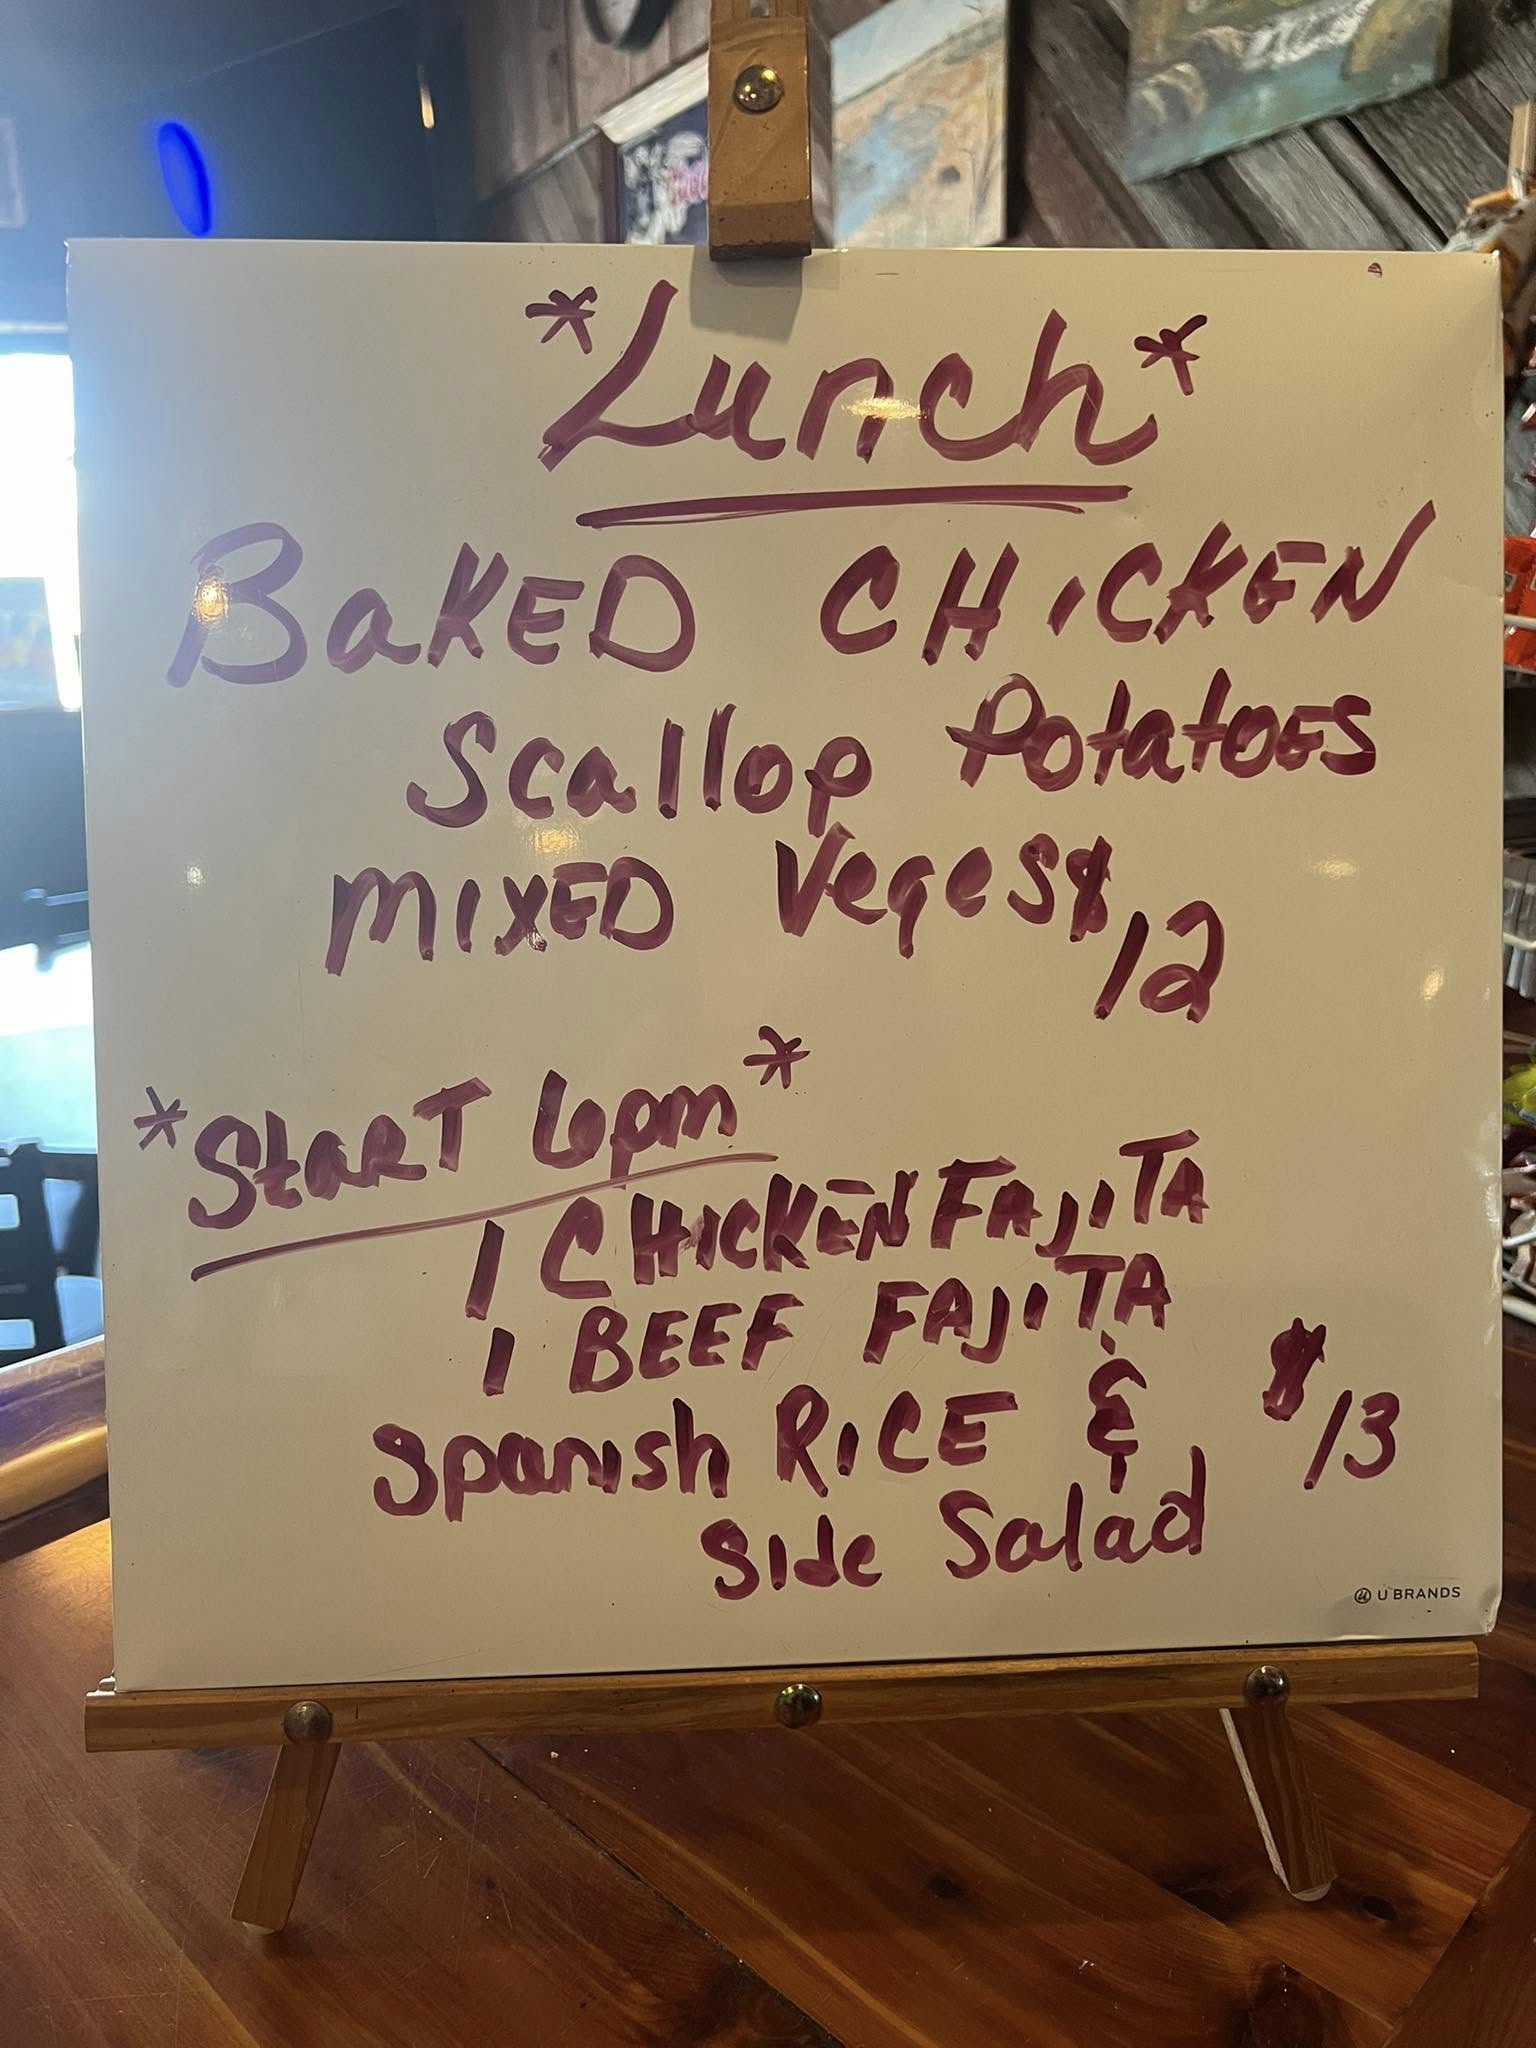 *Lunch*
BaKED CHiCKEN
Scallop Potatoes
MIXED Veges $12
*StaRT 6pm*
1 CHICKEN FAJITA
1 BEEF FAJITA
Spanish RICE & $13
Side Salad
U BRANDS